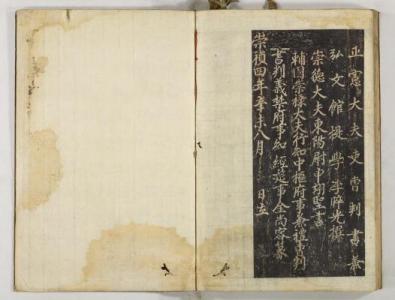 正憲大夫吏曹判書兼
弘文館提學李睟光撰
崇德大夫東陽尉申翊聖書
輔國崇祿大夫行知中樞府事兼禮曹判
書判義禁府事知 經筵事金尚容篆
崇禎四年辛未八月 日立